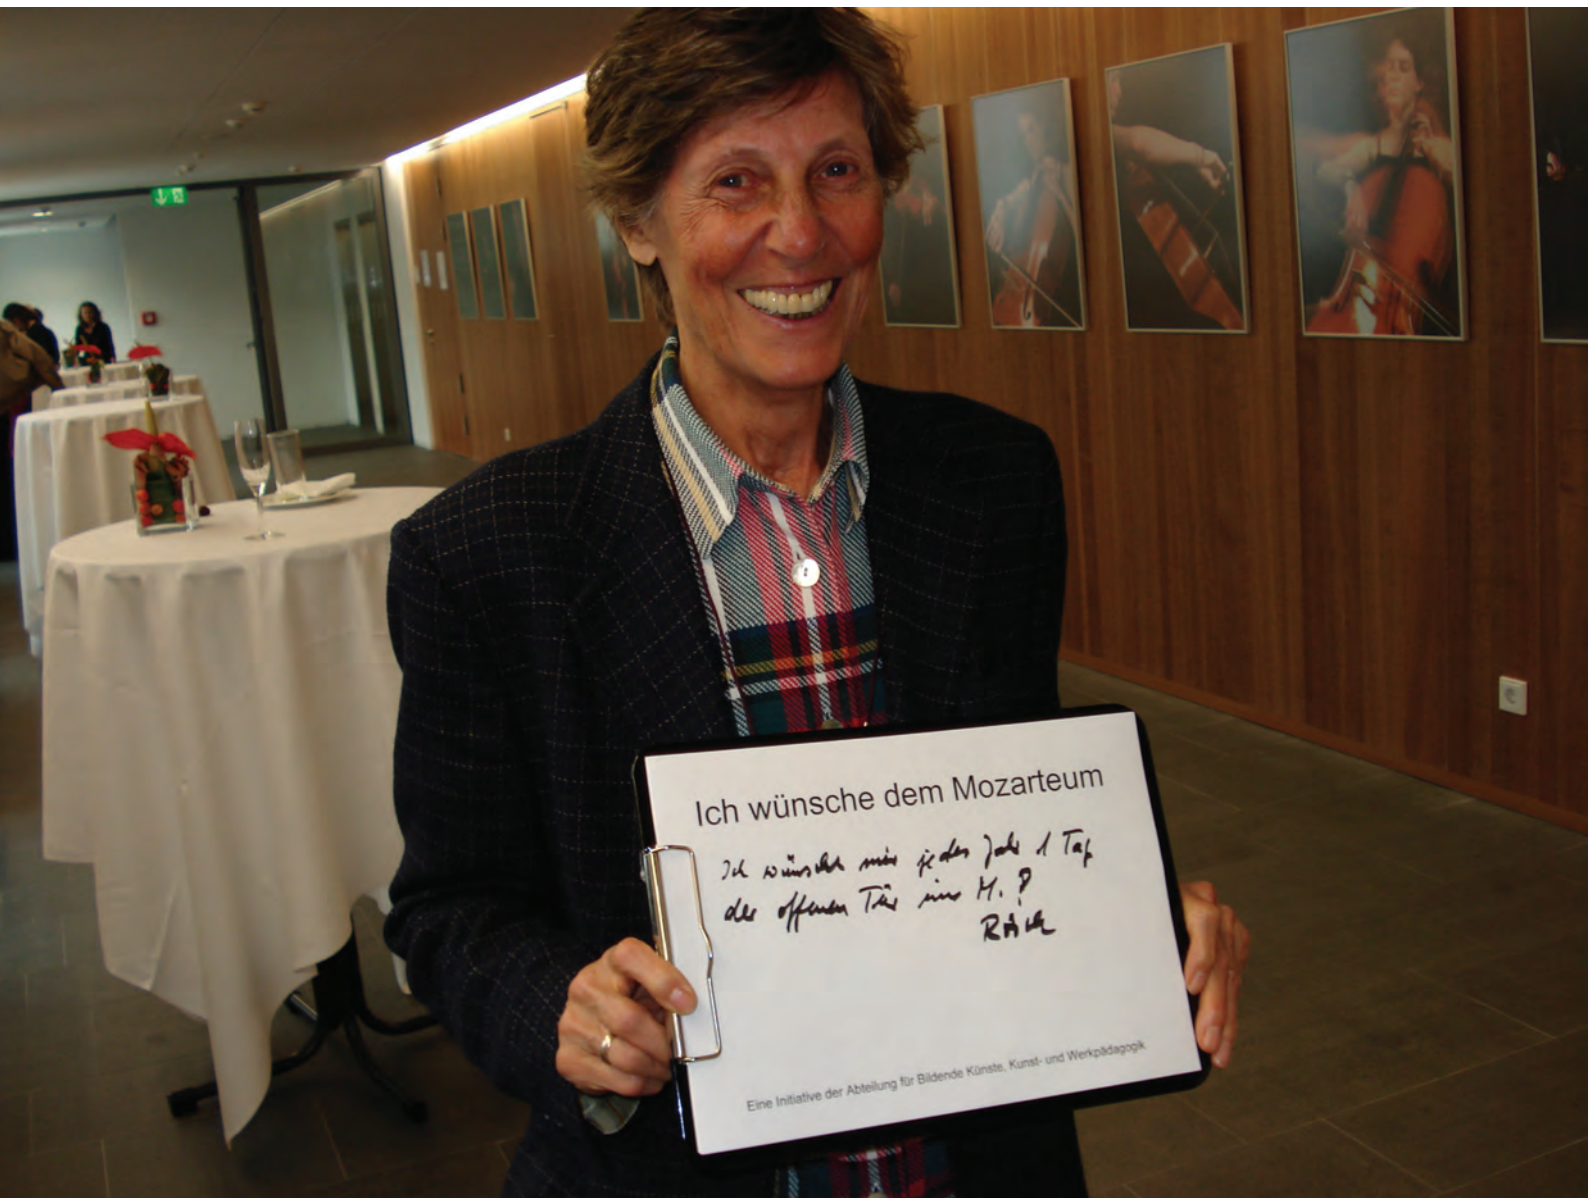 Ich wünsche dem Mozarteum
Ich wünsche mir jedes Jahr 1 Tag
der offenen Tür im M.!
Eine Initiative der Abteilung für Bildende Künste, Kunst- und Werkpädagogik